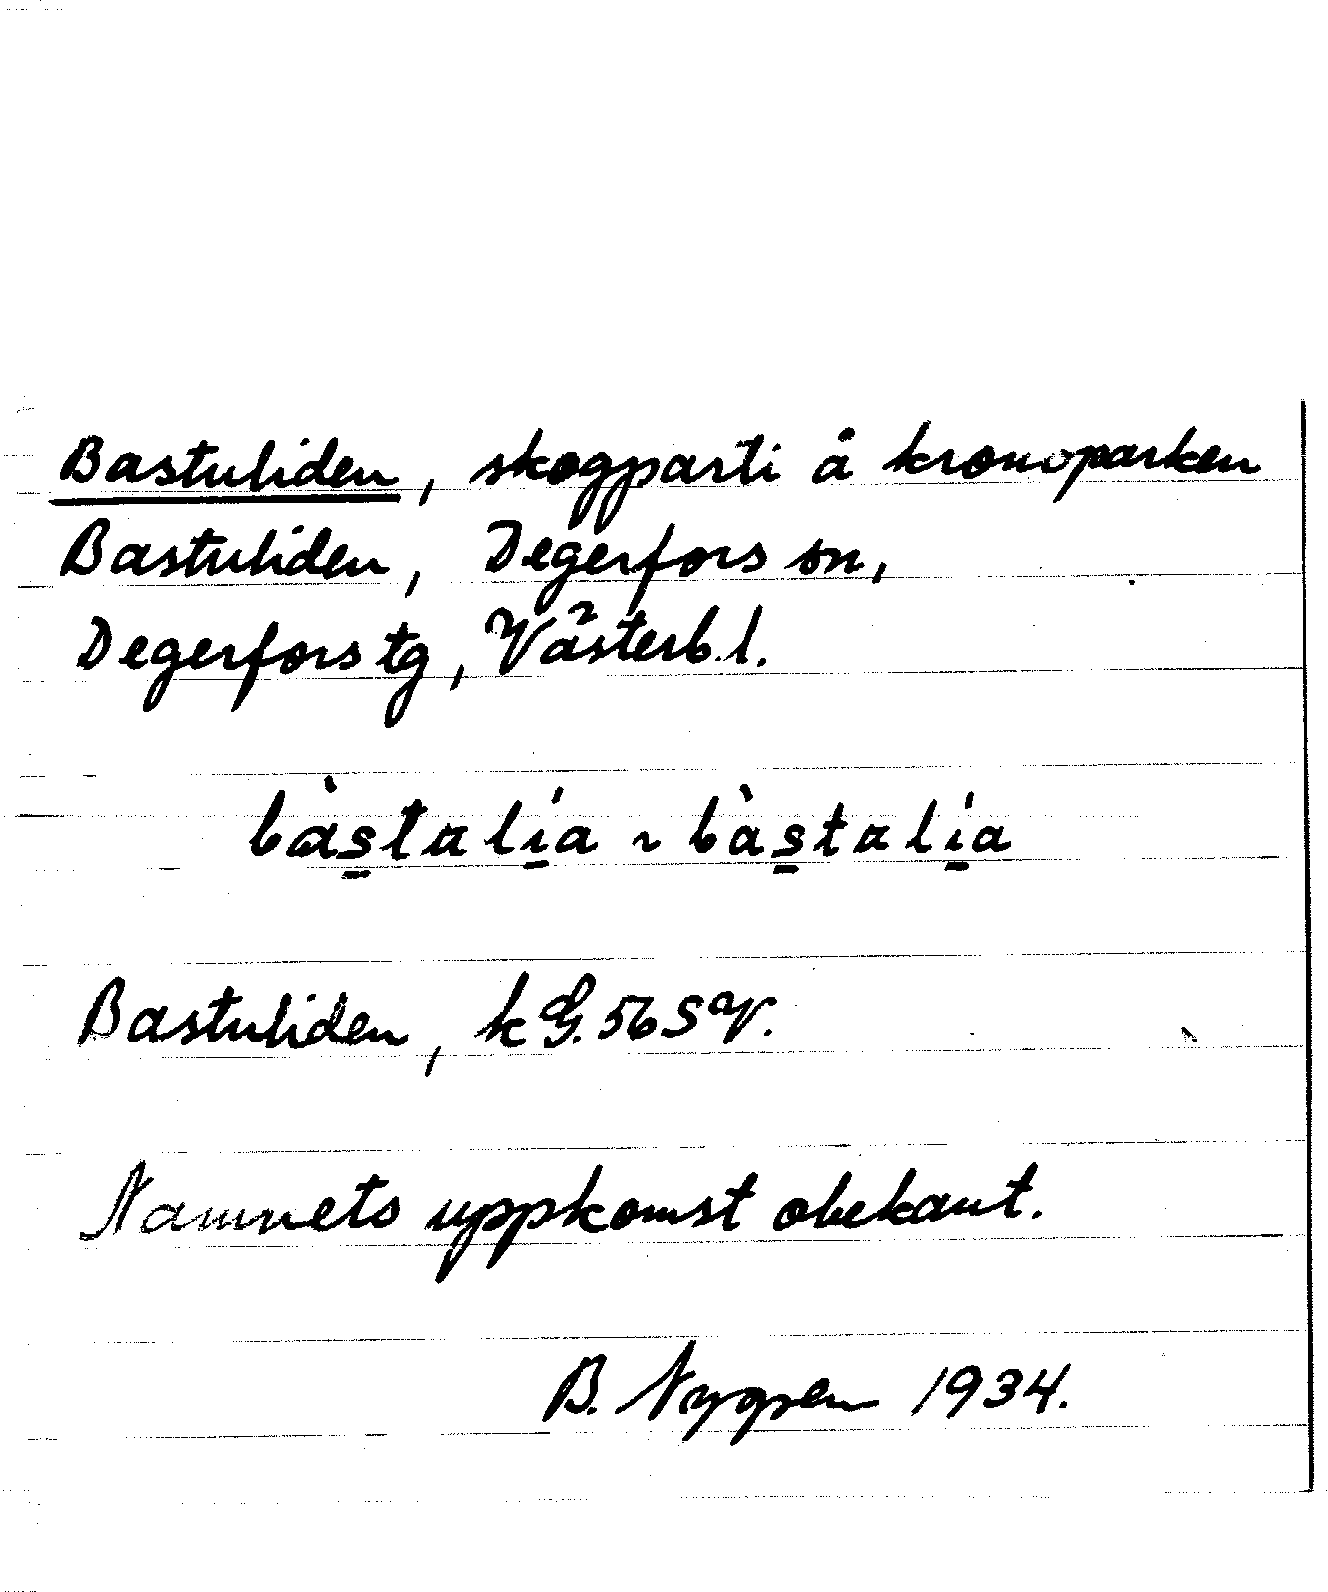 Bastuliden, skogparti å kronoparken
Bastuliden, Degerfors sn,
Degerfors tg, Västerb. l.
bàs̱talí̱a ~ bàs̱talí̱a
Bastuliden, kG. 56 SV.
Namnets uppkomst obekant.
B. Nygren 1934.